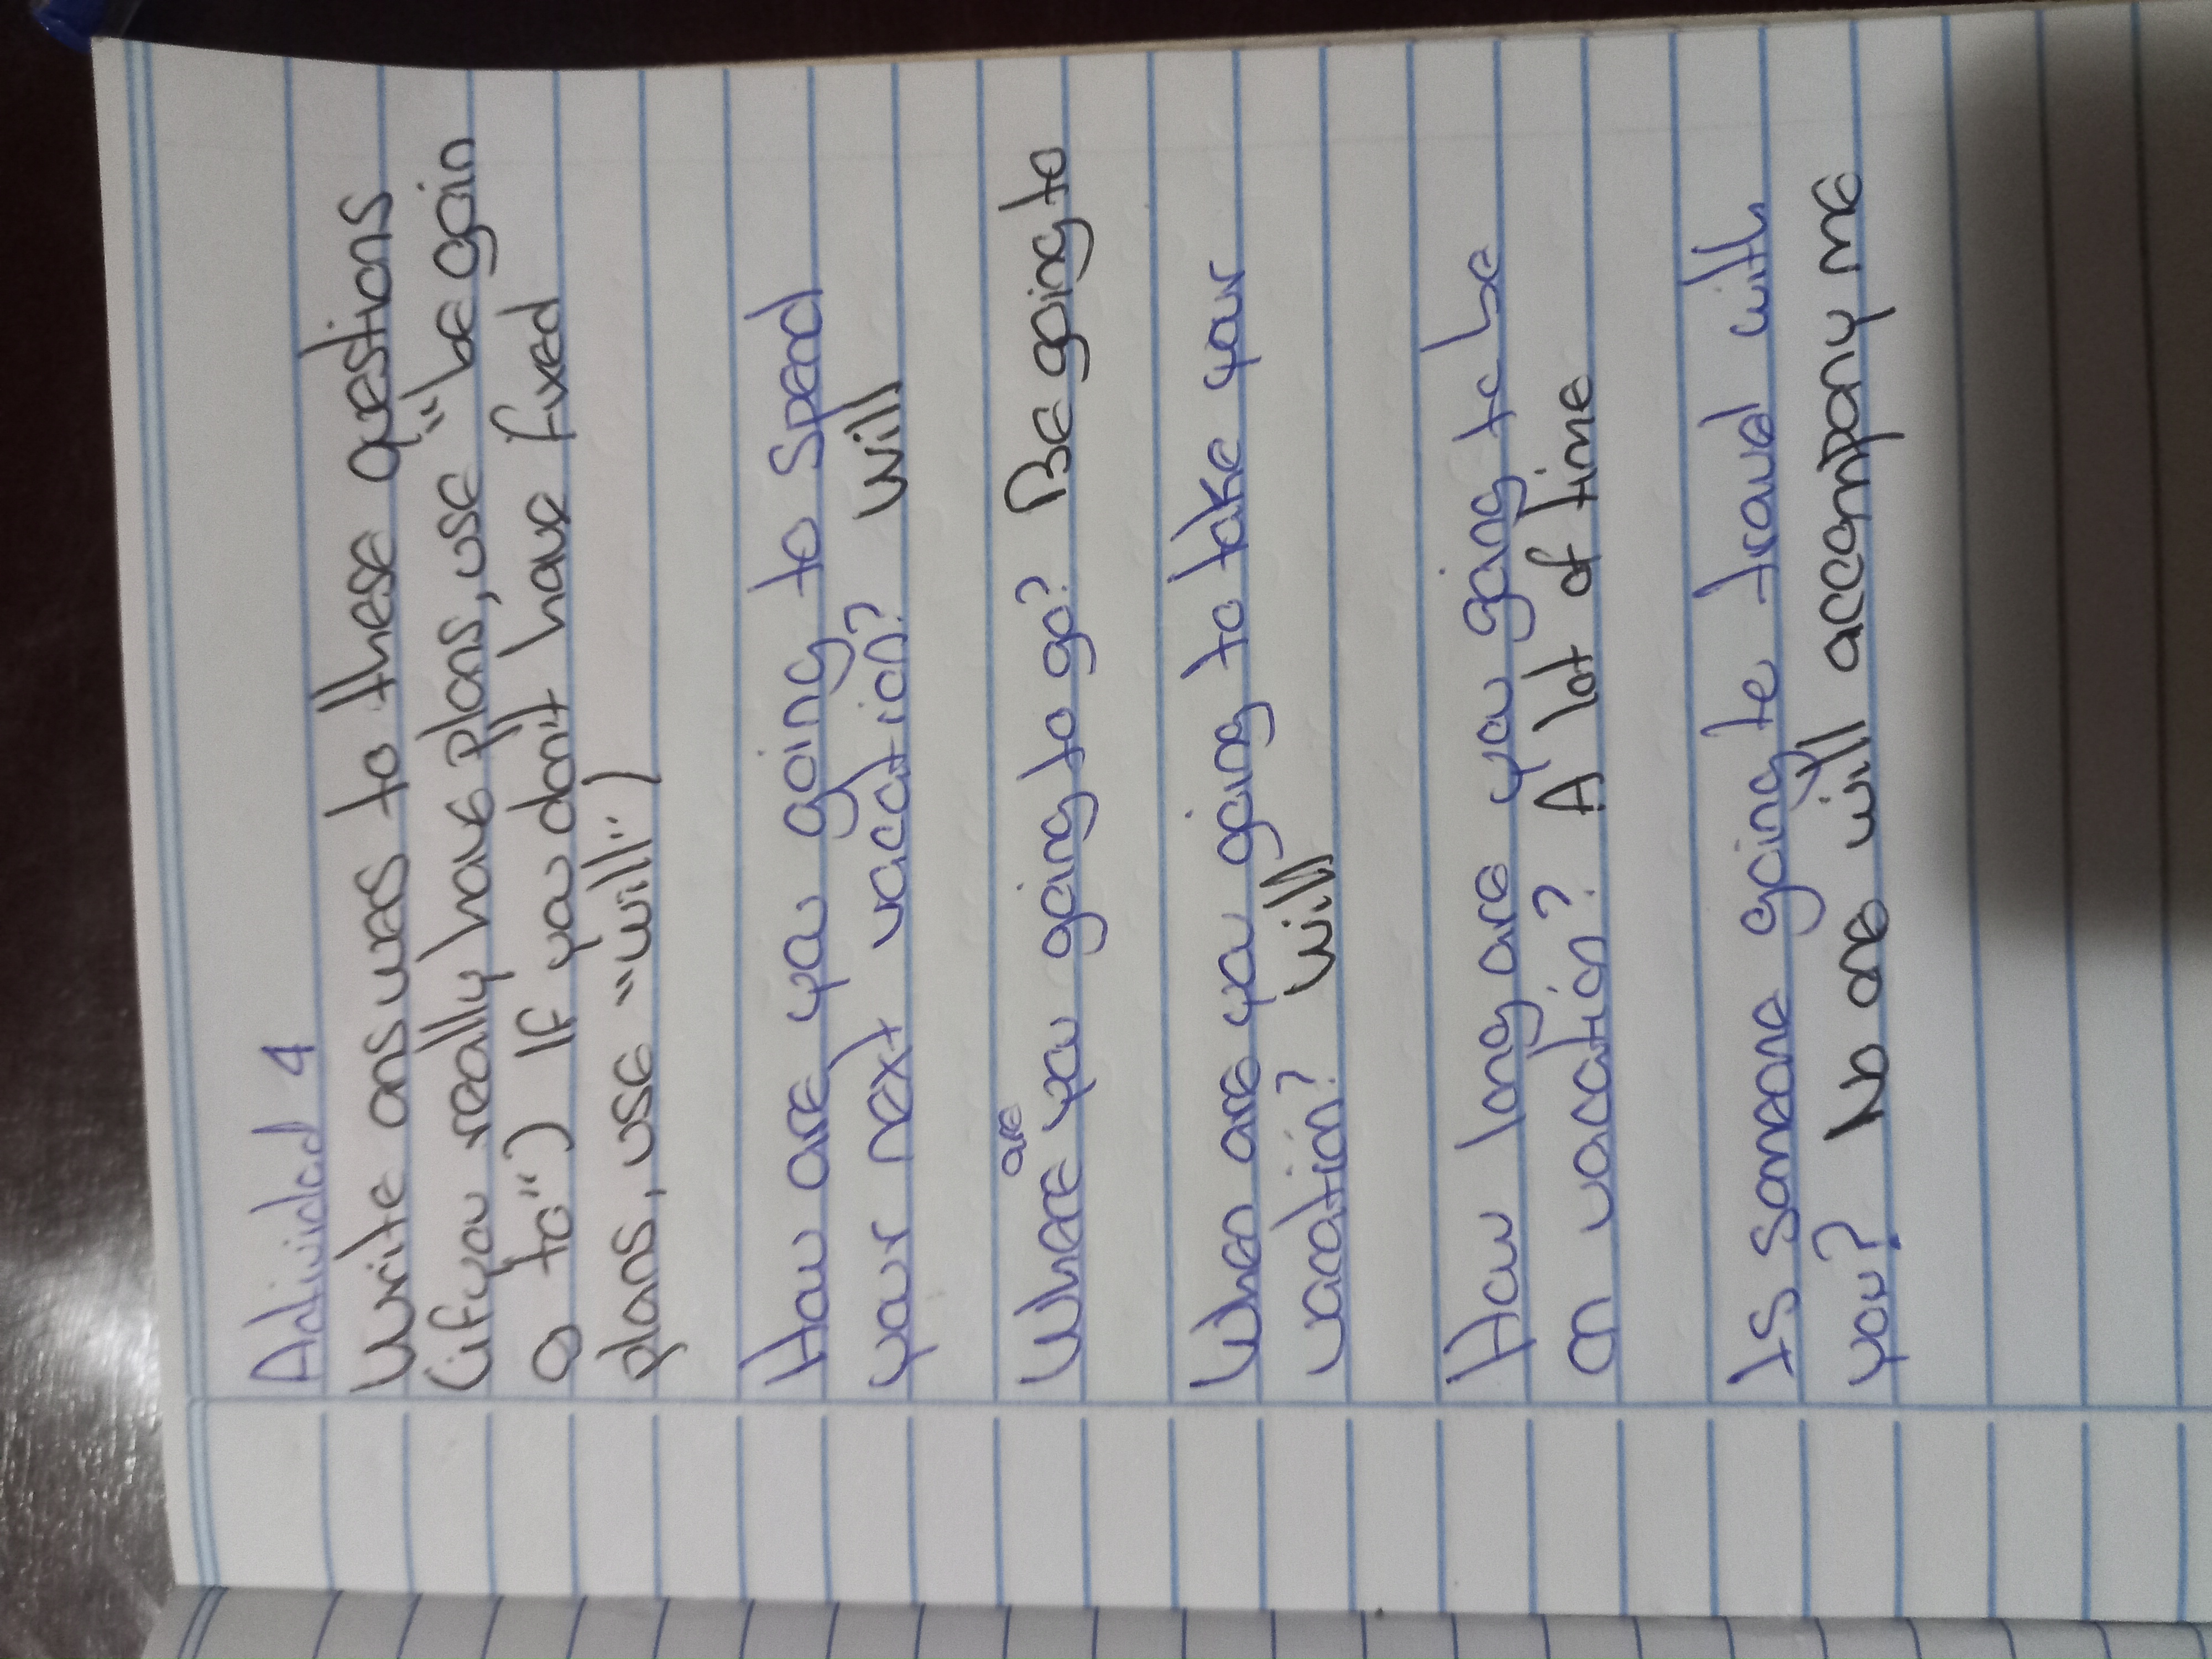 Actividad 4
Write answes to these questions
(if you really have plans, use "be goin
g to") If you don't have fixed
plans, use "will")
How are you going to spend
your next vacation? Will
are
Where you going to go? Be going to
When are you going to take your
vacation? Will
How long are you going to be
on vacation? A lot of time
Is someone going to travel with
you? No one will accompany me